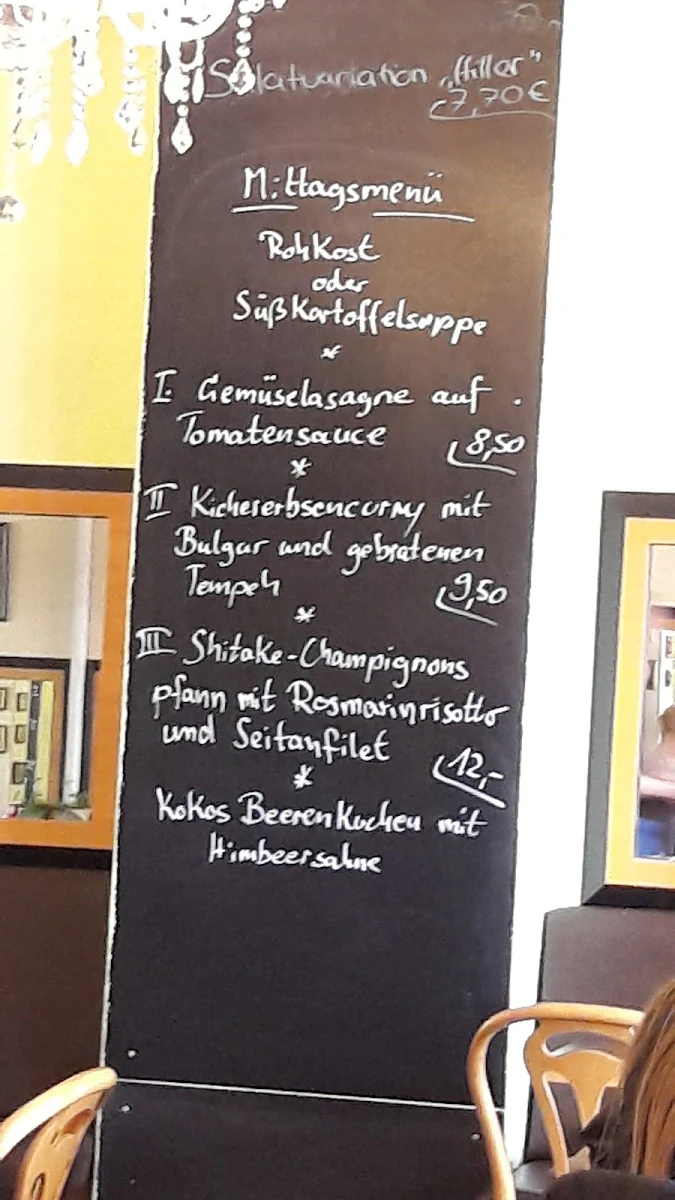 Salatvariation „Hiller"
7,70€
Mittagsmenü
Rohkost
oder
Süßkartoffelsuppe
*
I. Gemüselasagne auf
Tomatensauce 8,50
*
II Kichererbsencurry mit
Bulgur und gebratenen
Tempeh 9,50
*
III Shitake-Champignons
pfann mit Rosmarinrisotto
und Seitanfilet 12,-
*
Kokos Beerenkuchen mit
Himbeersahne